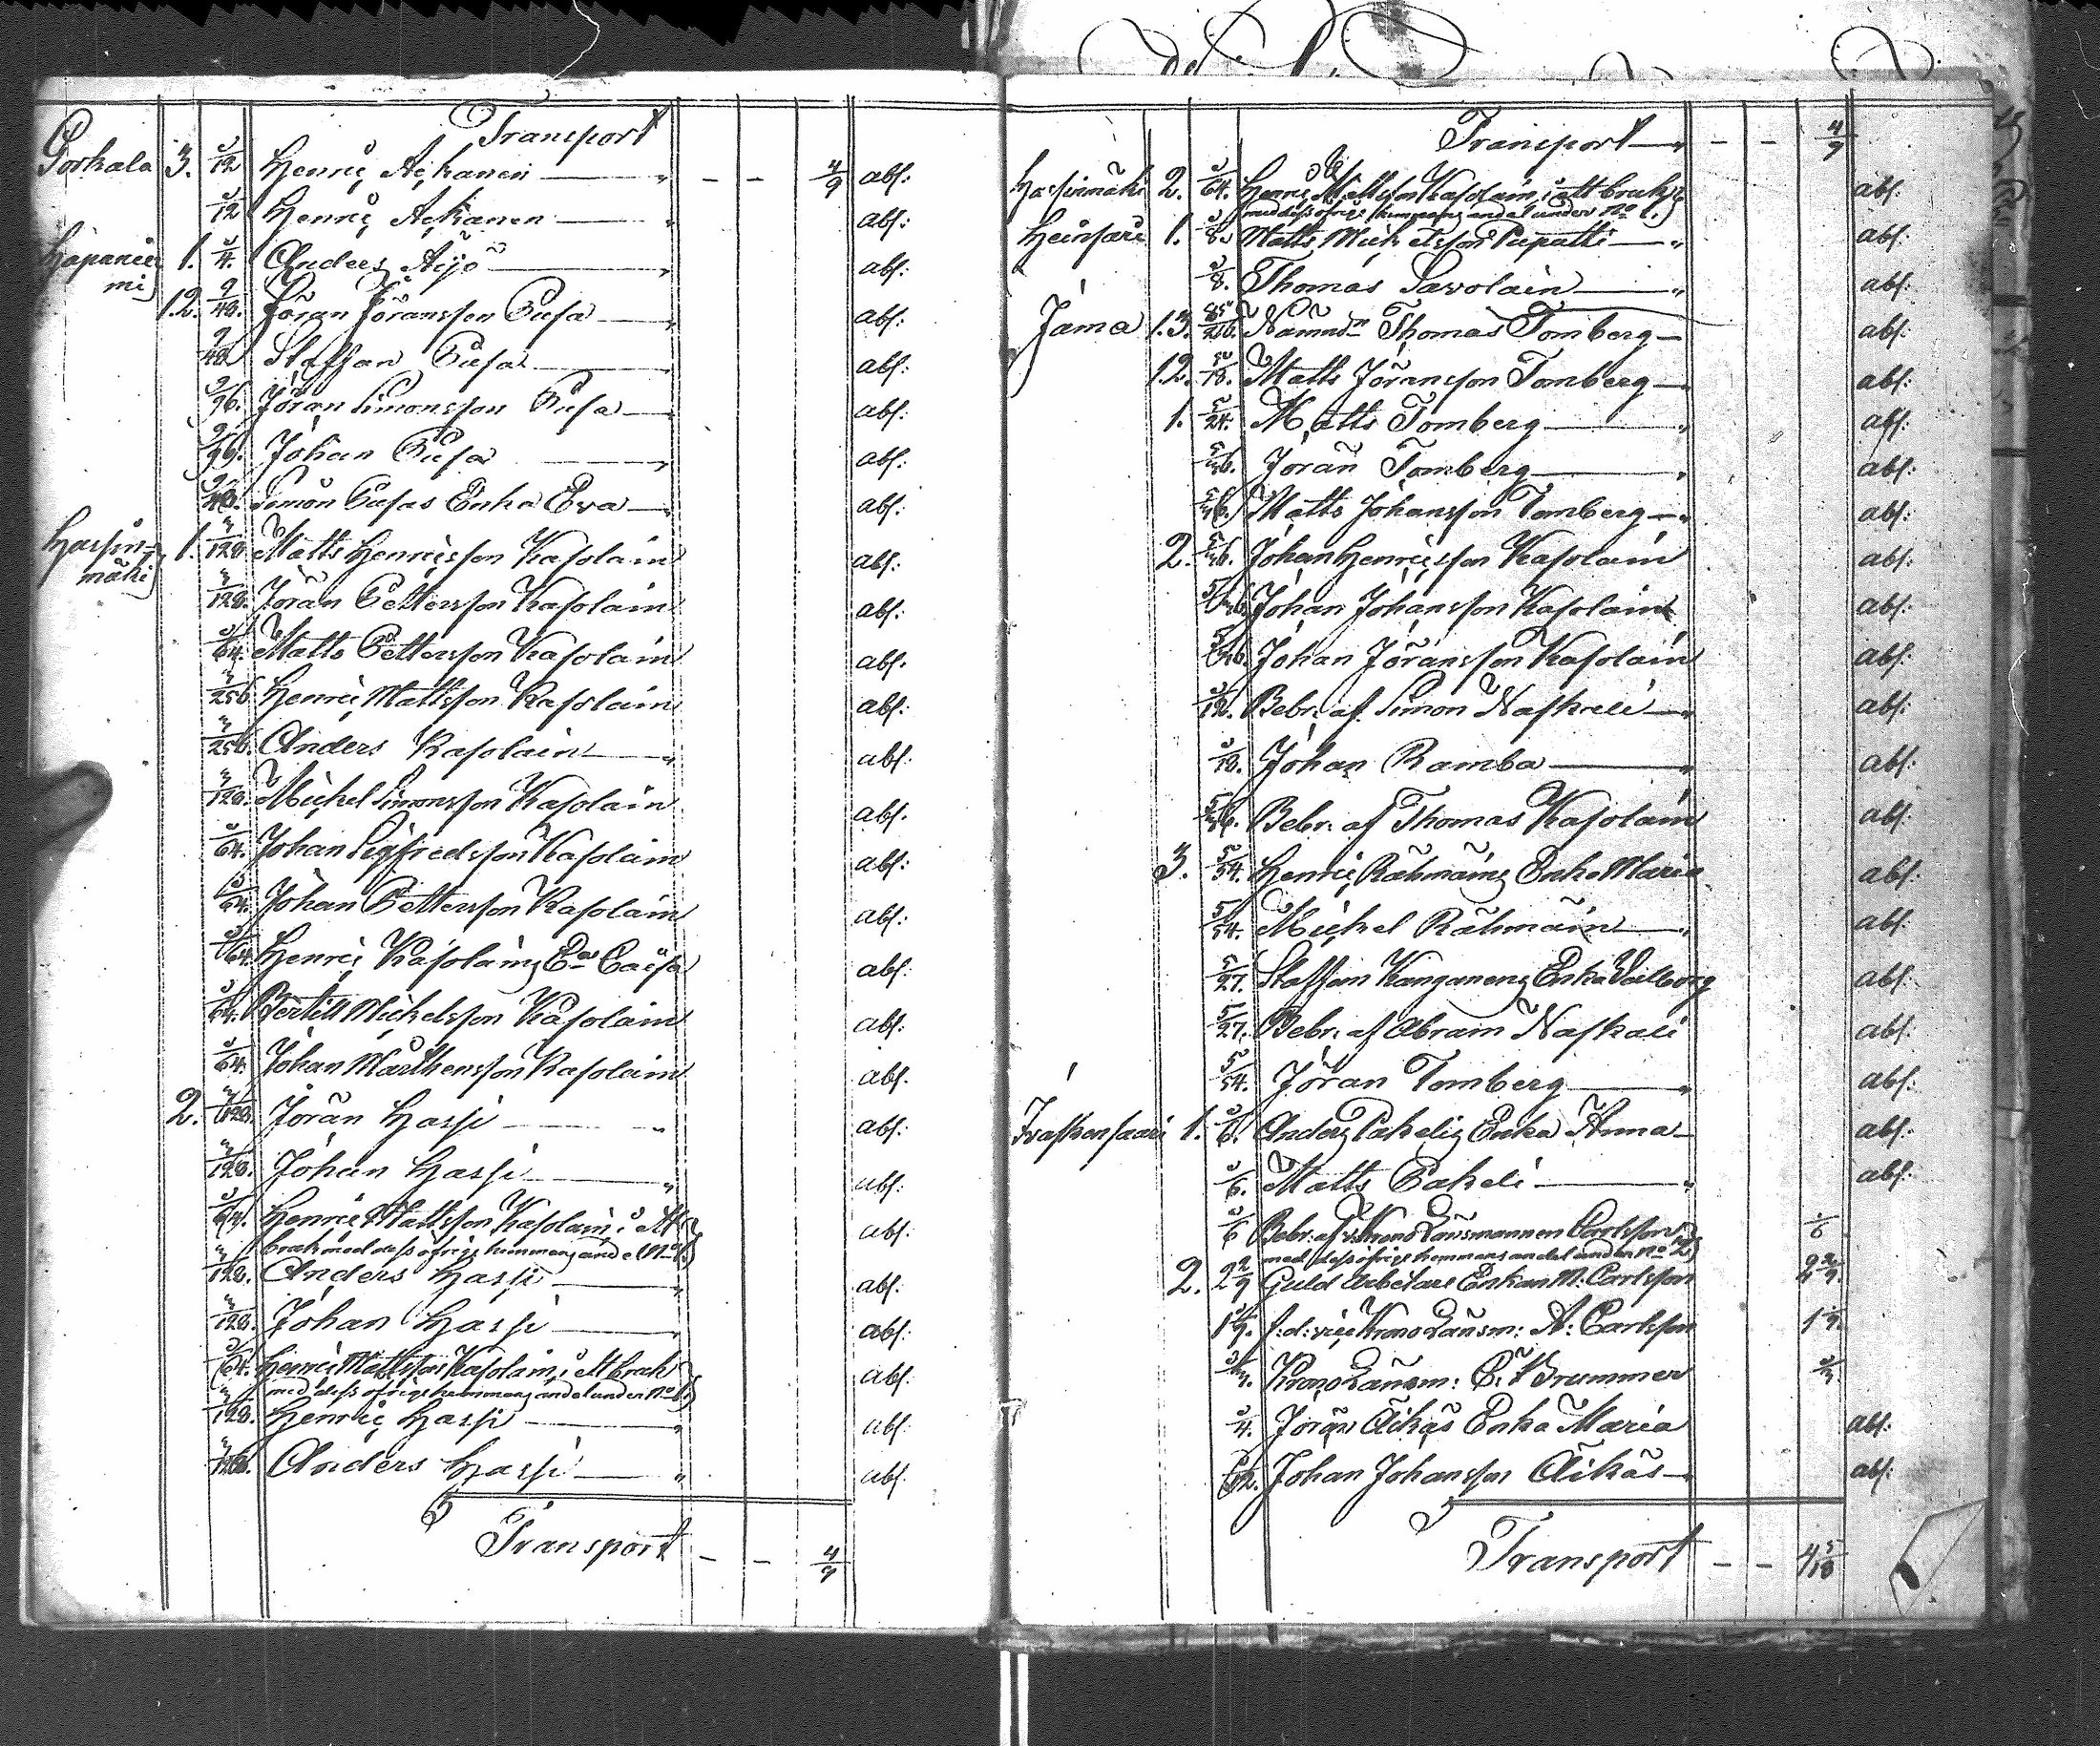 Transport
Porkala 3. 1/12 Henric Ackanen — " — — 4/9 abs:
1/12 Henric Ackanen — " abs:
Hapanie 1. 1/4. Anders Äijö — " abs:
mi
1.2. 9/40. Jöran Jöransson Pusa — " abs:
9/40. Staffan Pusa — " abs:
9/96. Jöran Simonsson Pusa — " abs:
9/96. Johan Pusa — " abs:
Simon Pusas Enka Eva — " abs:
Hassin= 1. 3/128 Matts Henricsson Kasolain abs:
mäki
3/128. Jöran Pettersson Kasolain abs:
1/64. Matts Pettersson Kasolain abs.
3/256 Henric Mattsson Kasolain abs:
3/256. Anders Kasolain — " abs:
3/128. Michel Simonsson Kasolain abs.
1/64. Johan Sigfredsson Kasolain abs:
1/64. Johan Pettersson Kasolain abs:
1/64. Henric Kasolains Eas Caisa abs:
1/64. Bertill Michelsson Kasolain abs:
1/64. Johan Mårthensson Kasolain abs.
2. 3/128. Jöran Hassi — " abs:
3/128. Johan Hassi — " abs:
1/64. Henric Mattsson Kasolain i ett abs:
bruk med dess öfrige hemmans andel No 1.
3/128. Anders Hassi — " abs:
3/128. Johan Hassi — " abs:
1/64. Henric Mattsson Kasolain, i ett bruk abs:
med dess öfrige hemmans andel under No 1.
3/128. Henric Hassi — " abs:
3/128. Anders Hassi — " abs.
Transport — — 4/9
Transport — " — — 4/9
Hassinmäki 2. 1/64. Henric Mattsson Kasolain, i ett bruk abs:
med dess öfrige hemmans andel under No 1.
Heinsari 1. 1/8. Matts Michelsson Pupatti — " abs:
1/8. Thomas Savolain — " abs:
Jama 1.3. 85/216. Nämndn Thomas Tomberg — abs:
1.2. 5/18. Matts Jöransson Tomberg — abs:
1. 5/24. Matts Tomberg — " abs:
5/36. Jöran Tomberg — " abs:
Matts Johansson Tomberg — " abs:
2. 5/36. Johan Henricsson Kasolain abs:
Johan Johansson Kasolain abs:
Johan Jöransson Kasolain abs:
1/12. Bebr: af Simon Naskali — " abs:
Johan Ramba — " abs:
Bebr: af Thomas Kasolain abs:
3. 5/54. Henric Rähmäins Enka Maria abs:
5/54. Michel Rähmäin — " abs:
5/27. Staffan Kanganens Enka Valborg abs:
5/27. Bebr: af Abram Naskali abs:
5/54. Jöran Tomberg — " abs:
Iraskensaari 1. 1/6. Anders Pakelis Enka Anna — abs:
1/6. Matts Pakeli — " abs:
1/6 Bebr: af v. Krono Länsmannen Carlsson 1/6
med dess öfrige hemmans andel under No 2
2. 2 2/9 Guld Arbetare Enkan M: Carlsson 2 2/9.
1 1/9. f:d: vice Krono Länsm: A: Carlsson 1 1/9.
Krono Länsm: C: Brummer
1/4. Jöran Äikäs Enka Maria abs:
Johan Johansson Äikäs — " abs:
Transport — — 4 5/18